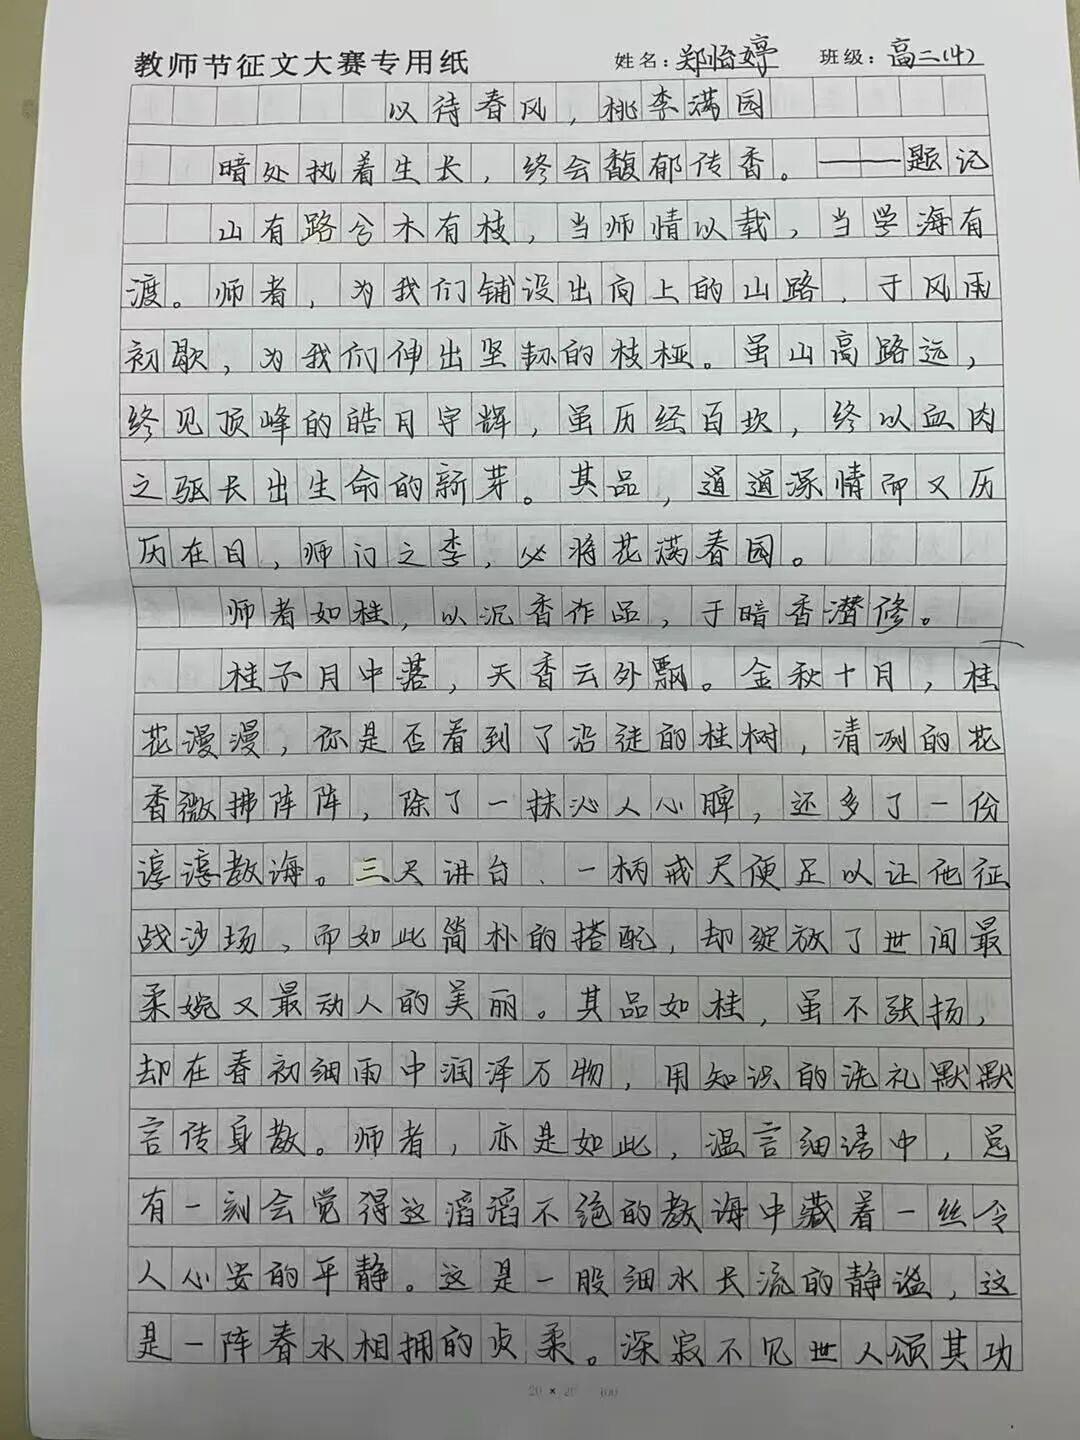 教师节征文大赛专用纸 姓名:郑怡婷 班级:高二(4)
以待春风,桃李满园
暗处执着生长,终会馥郁传香。——题记
山有路兮木有枝,当师情以载,当学海有
渡。师者,为我们铺设出向上的山路,于风雨
初歇,为我们伸出坚韧的枝桠。虽山高路远,
终见顶峰的皓月宇辉,虽历经百坎,终以血肉
之驱长出生命的新芽。其品,道道深情而又历
历在目,师门之李,必将花满春园。
师者如桂,以沉香作品,于暗香潜修。
桂子月中落,天香云外飘。金秋十月,桂
花漫漫,你是否看到了沿途的桂树,清冽的花
香微拂阵阵,除了一抹沁人心脾,还多了一份
谆谆教诲。三尺讲台、一柄戒尺便足以让他征
战沙场,而如此简朴的搭配,却绽放了世间最
柔婉又最动人的美丽。其品如桂,虽不张扬,
却在春初细雨中润泽万物,用知识的洗礼默默
言传身教。师者,亦是如此,温言细语中,总
有一刻会觉得这滔滔不绝的教诲中藏着一丝令
人心安的平静。这是一股细水长流的静谧,这
是一阵春水相拥的贞柔。深寂不见世人颂其功
20 × 20 400